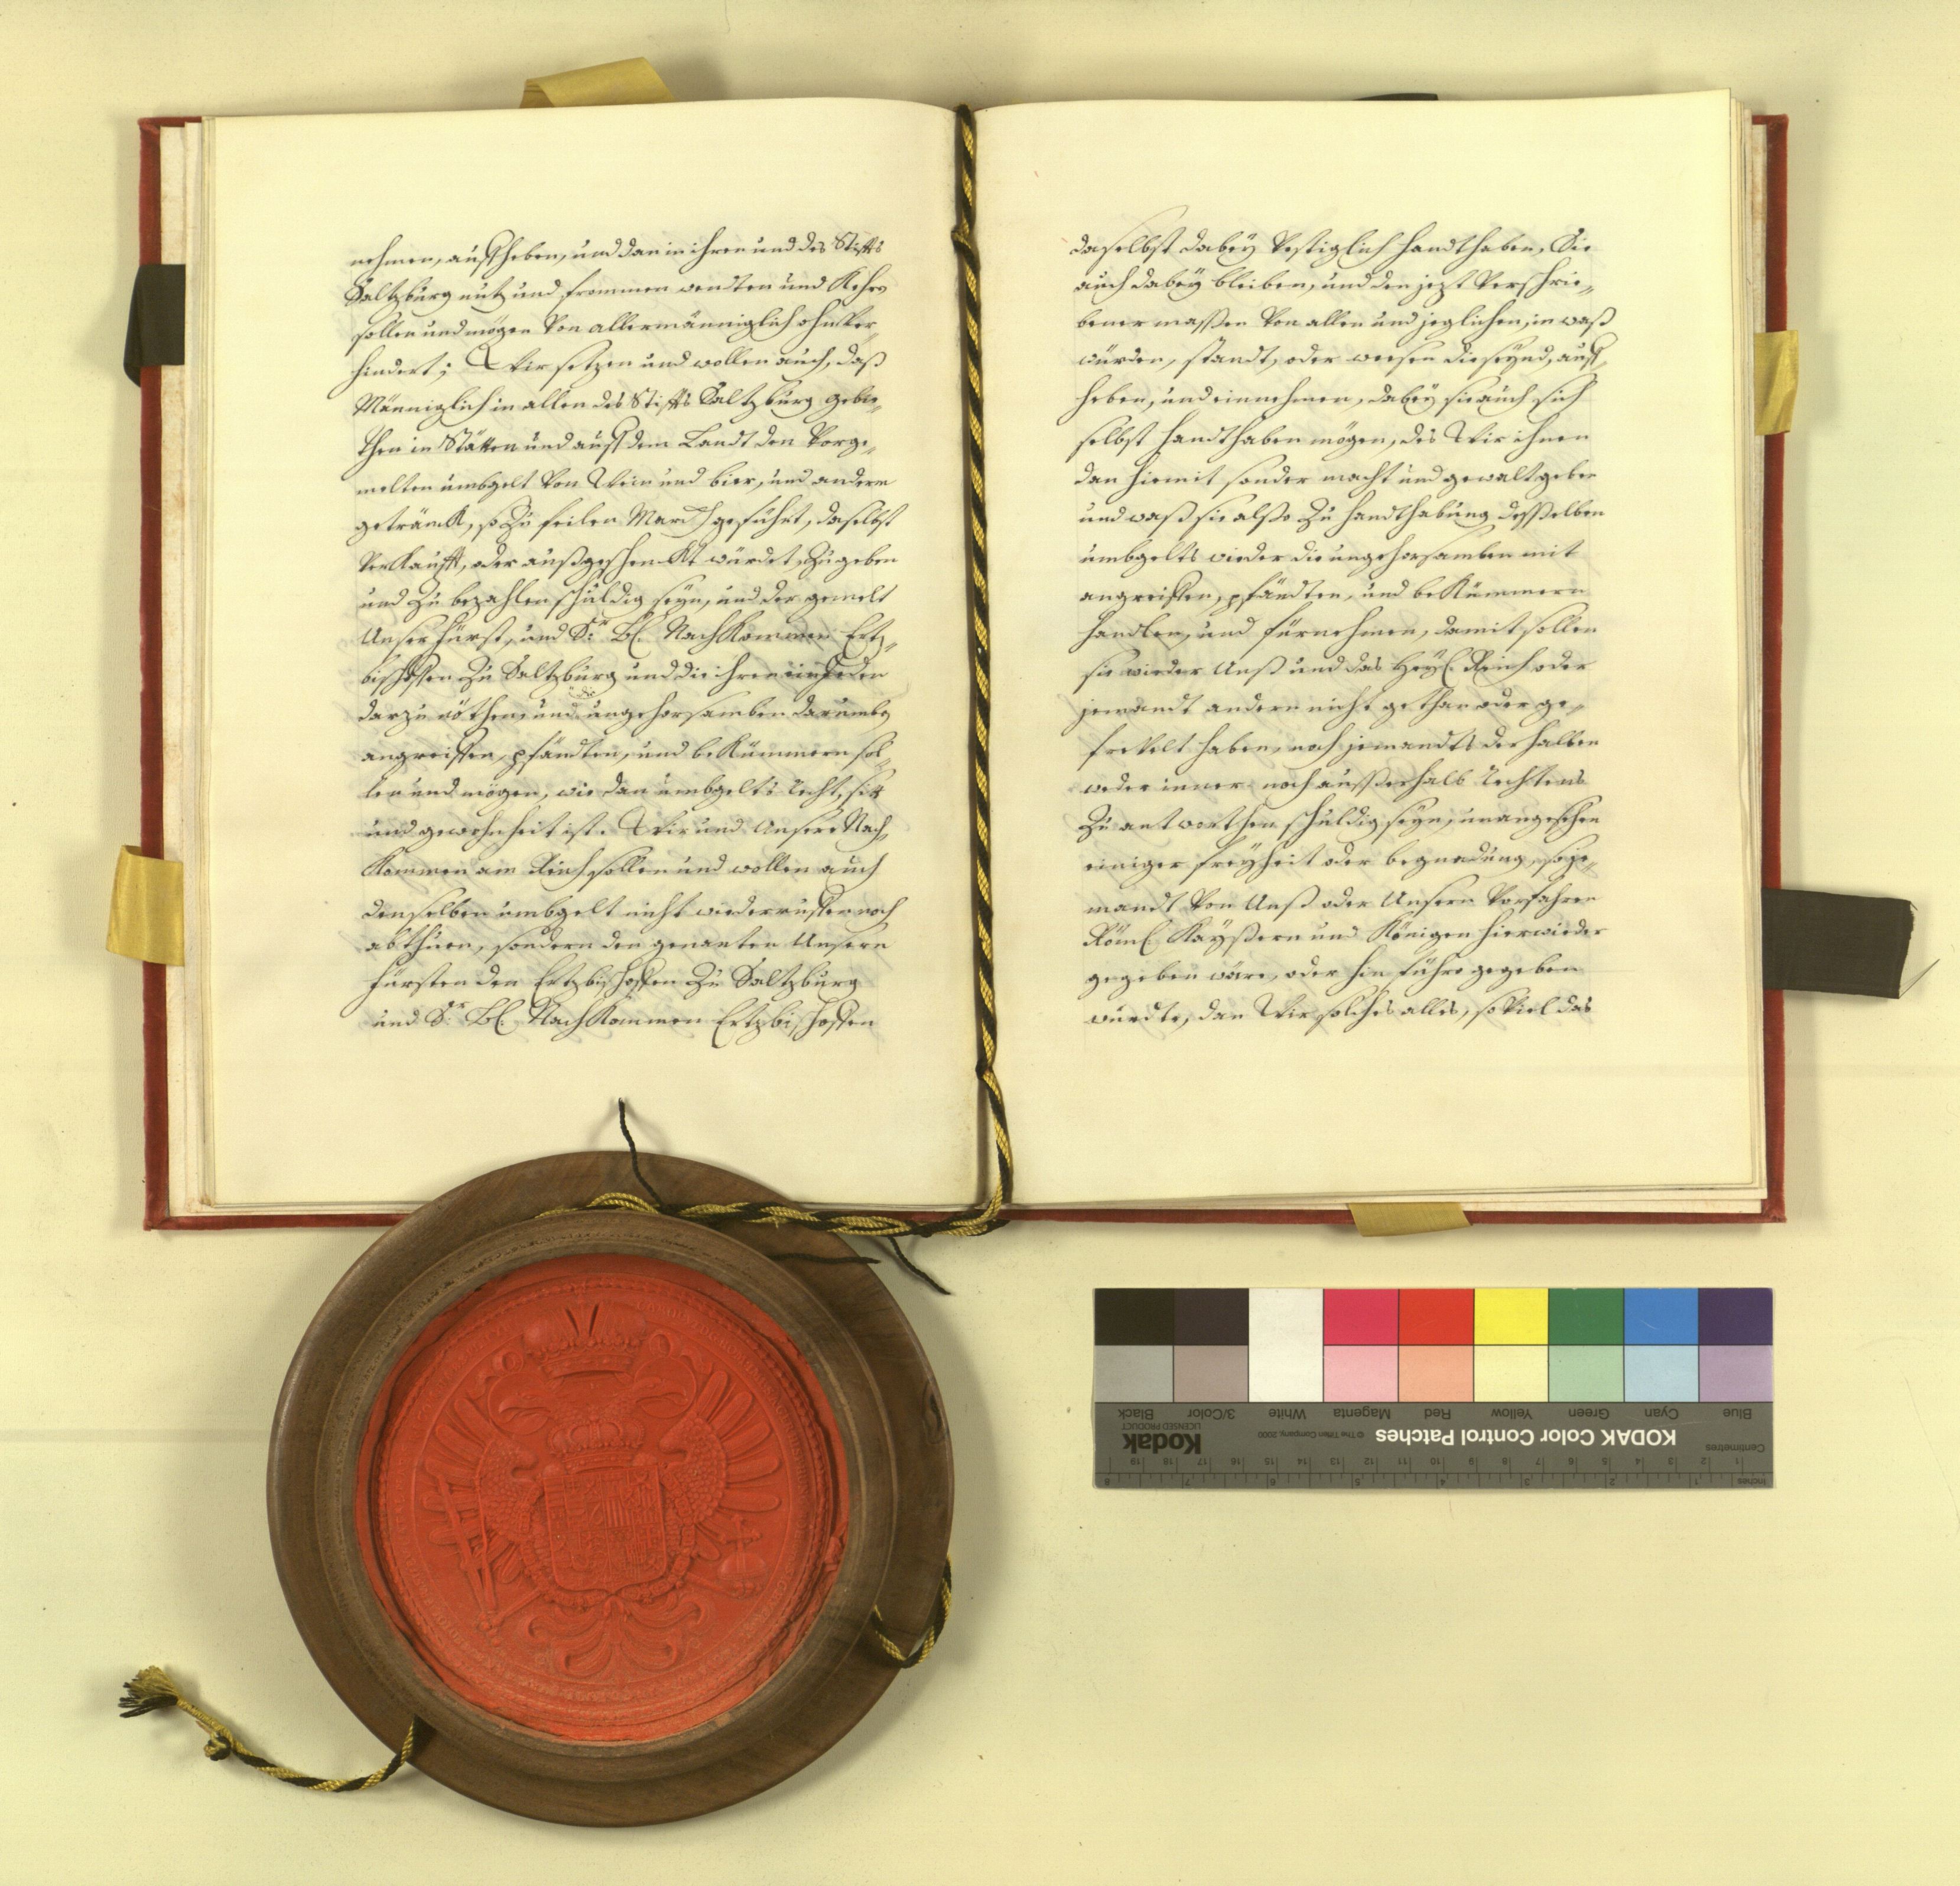 nehmen, auffheben, und dan in ihren und des Stiffts
Saltzburg nutz und frommen wendten und Kehrn
sollen und mögen von allermänniglich ohnver-
hindert; Wir setzen und wollen auch, daß
Männiglich in allen des Stiffts Saltzburg gebie-
then in Stätten und auff dem Landt den vorge-
melten umbgelt von Wein und bier, und andern
getränck, so Zu feilen Marckh geführt, daselbst
verKaufft, oder außgeschenckt würdet, Zu geben
und Zu bezahlen schuldig seyn, und der gemelt
Unser fürst, und Sr. Ld. NachKommen Ertz-
bischoffen Zu Saltzburg und die ihren einen jeden
darzu nöthen und die ungehorsamben darumby
angreiffen, pfändten, und beKümmern sol-
len und mögen, wie dan umbgelts recht, sitt
und gewohnheit ist. Wir und Unsere Nach
Kommen am Reich sollen und wollen auch
denselben umbgelt nicht wiederruffen noch
abthuen, sondern den genanten Unsern
fürsten den Ertzbischoffen Zu Saltzburg
und Sr. Ld. NachKommen Ertzbischoffen
daselbst dabey vestiglich handthaben, Sie
auch dabey bleiben, und den jezt verschrie-
bener massen von allen und jeglichen, in waß
würden, standt, oder weesen die seynd, auff
heben, und einnehmen, dabey sie auch sich
selbst handthaben mögen, des Wir ihnen
dan hiemit sonder macht und gewalt geben
und waß sie alßo Zu handthabung desselben
umbgelts wieder die ungehorsamben mit
angreiffen, pfändten, und beKümmern
handlen, und fürnehmen, damit sollen
sie wieder Unß und das Heyl. Reich oder
jemandt andern nicht gethan oder ge-
frevelt haben, noch jemandts derhalben
weder inner noch ausserhalb rechtens
Zu antworthen schuldig seyn, unangesehen
einiger freyheit oder begnadung, so je-
mandt von Unß oder Unsern Vorfahren
Röml. Kaysern und Königen hierwieder
gegeben wäre, oder hinführo gegeben
wurdte, dan Wir solches alles, so viel das
Blue
Cyan
Green
Yellow
Red
Magenta
White
3/Color
Black
KODAK Color Control Patches
© The Tiffen Company, 2000
Kodak
LICENSED PRODUCT
Centimetres
1 2 3 4 5 6 7 8 9 10 11 12 13 14 15 16 17 18 19
Inches
1 2 3 4 5 6 7 8